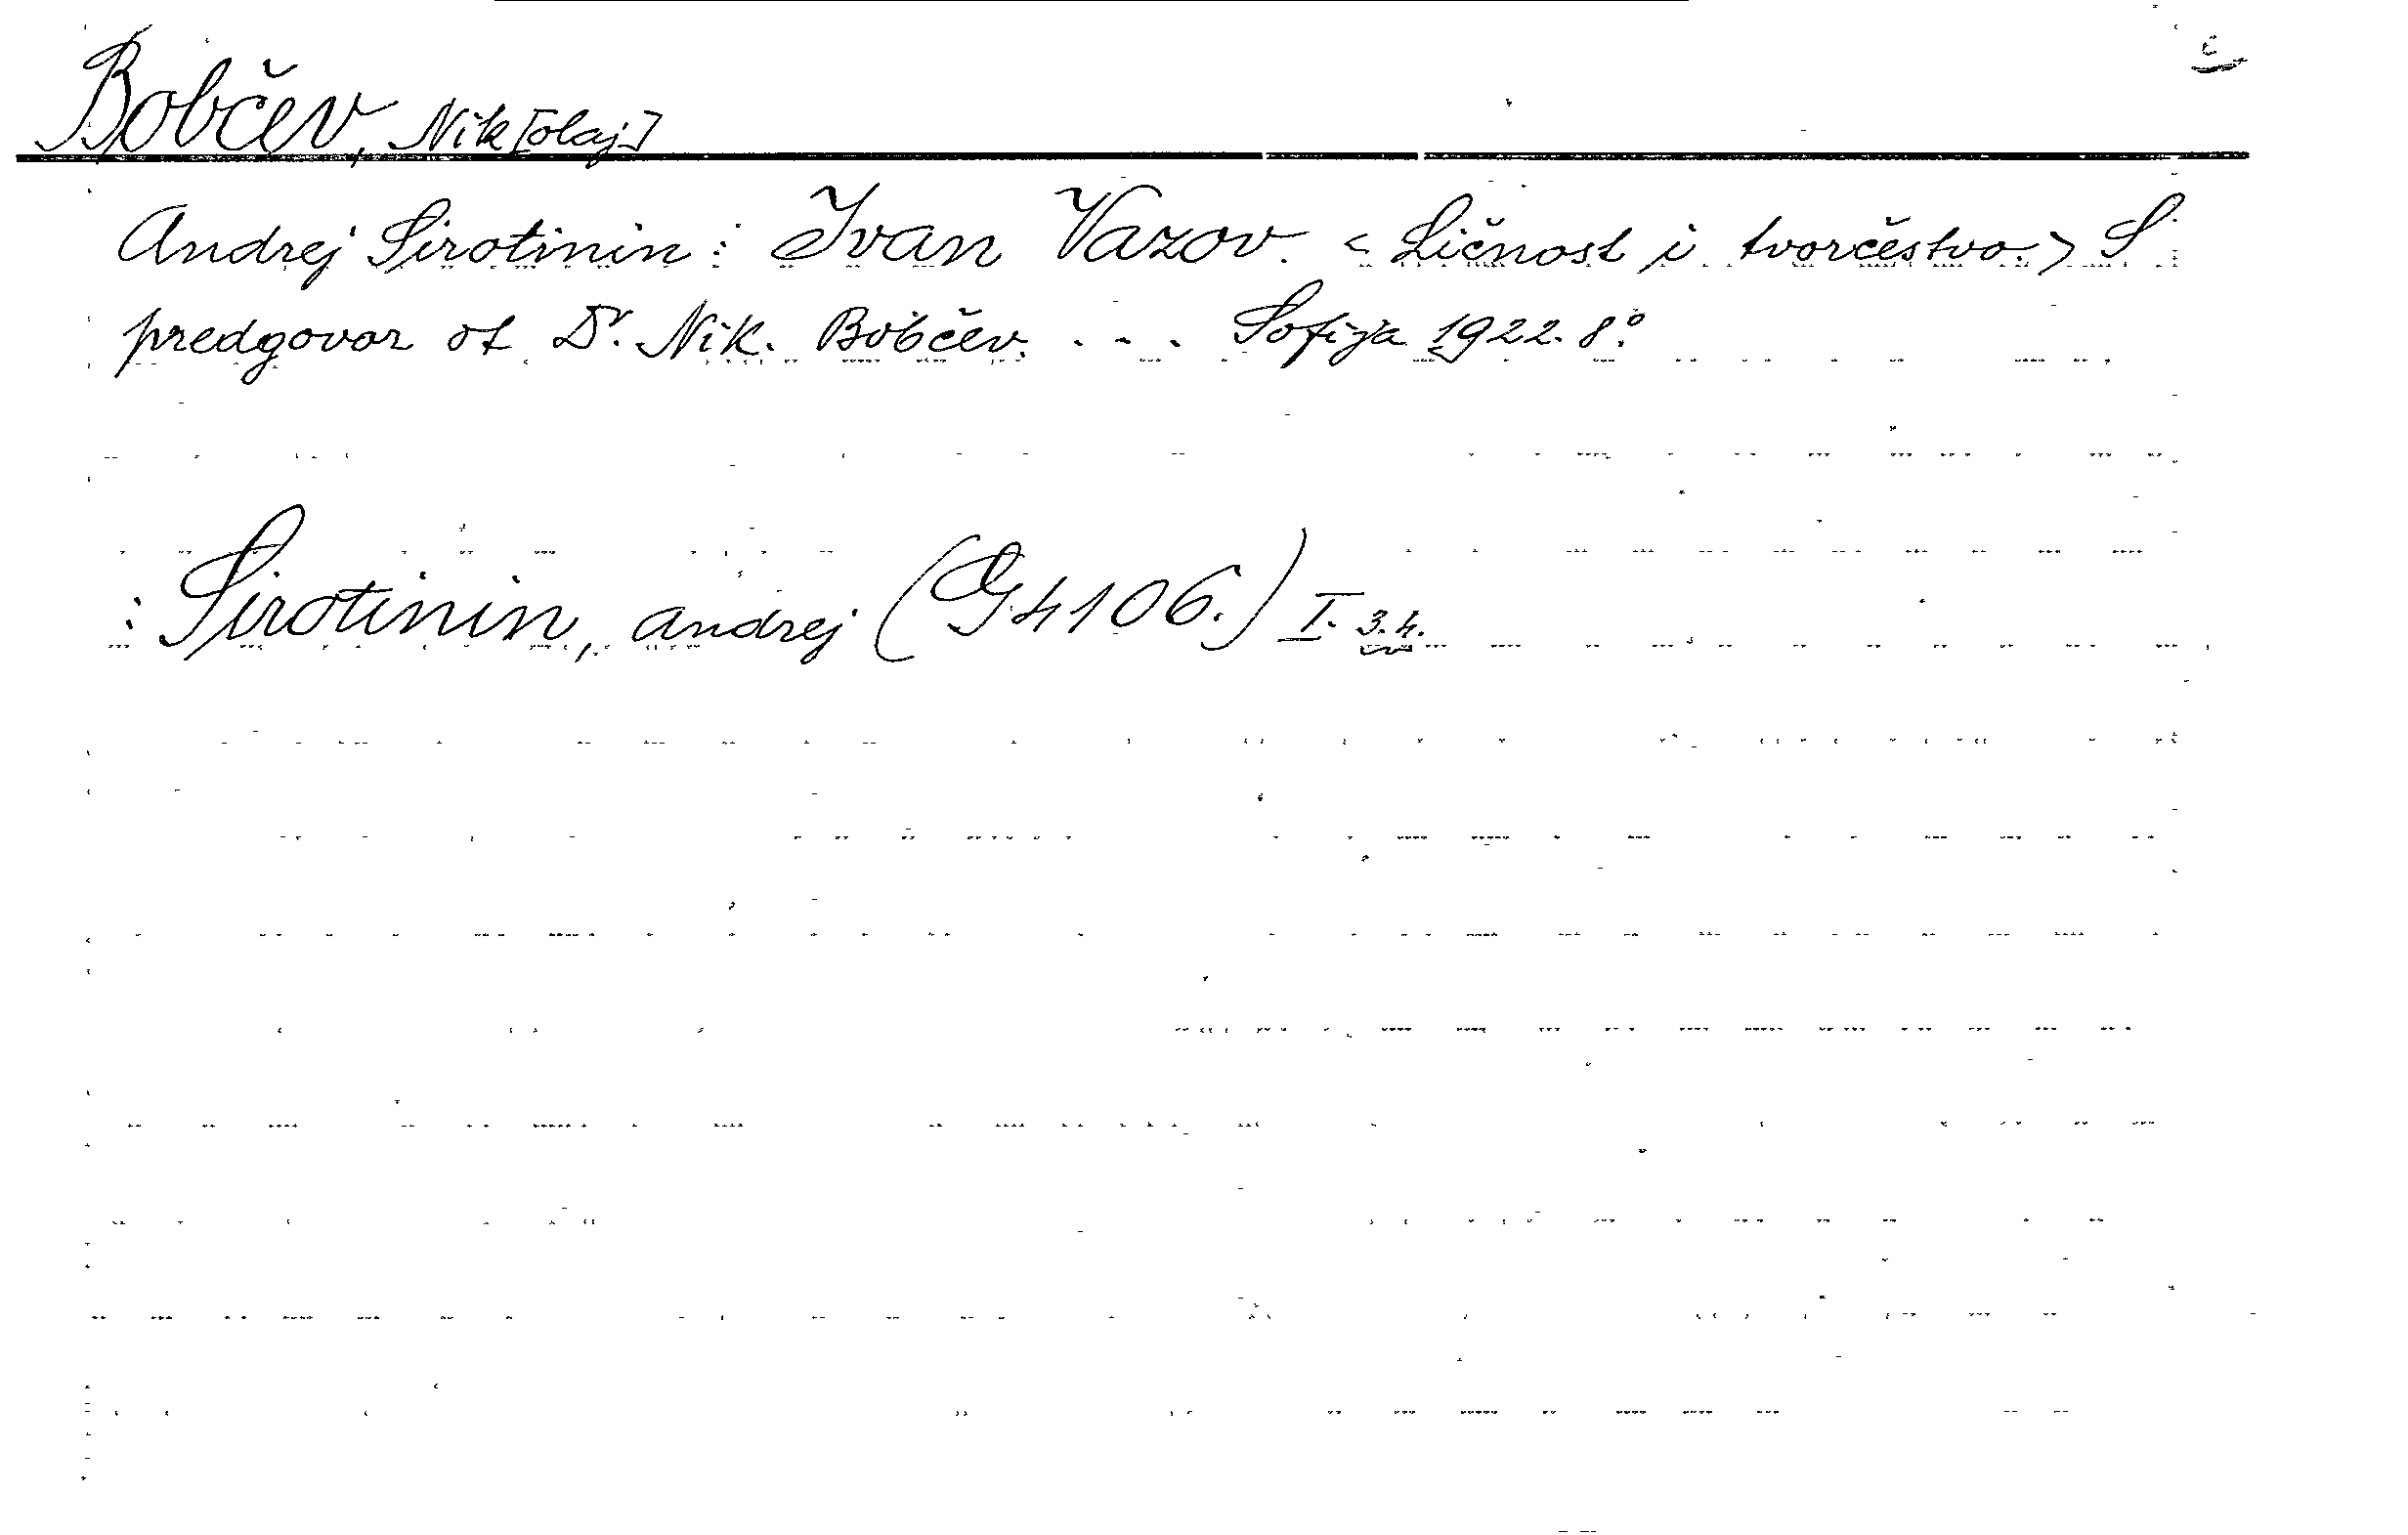 Bobčev, Nik[olaj]
Andrej Sirotinin: Ivan Vazov. <Ličnost i tvorčestvo.> S
predgovor ot Dr. Nik. Bobčev. . . . Sofija 1922. 8°.
: Sirotinin, Andrej (G 4106.) I. 3.4.